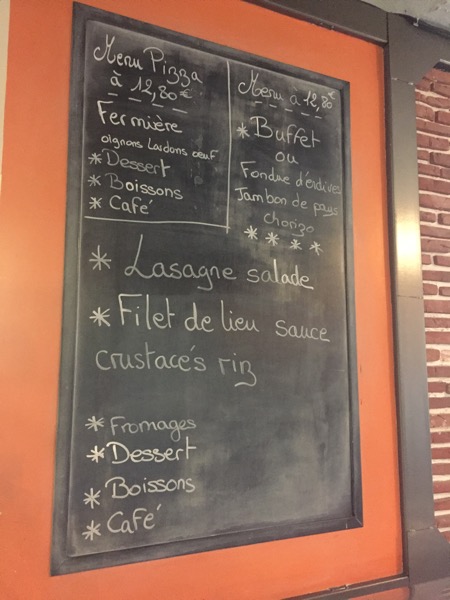 Menu Pizza
à 12,80€
Fermière
oignons Lardons oeuf
* Dessert
* Boissons
* Café
Menu à 12,80€
* Buffet
ou
Fondue d'endives
Jambon de pays
chorizo
* * * *
* Lasagne salade
* Filet de lieu sauce
crustacés riz
* Fromages
* Dessert
* Boissons
* Café